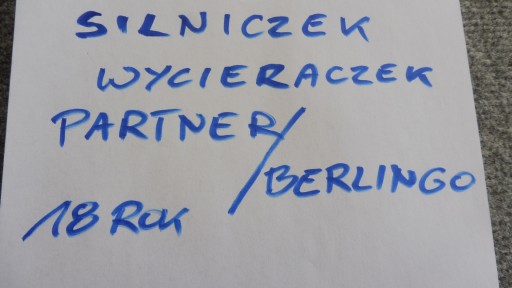 SILNICZEK
WYCIERACZEK
PARTNER/
BERLINGO
18 ROK